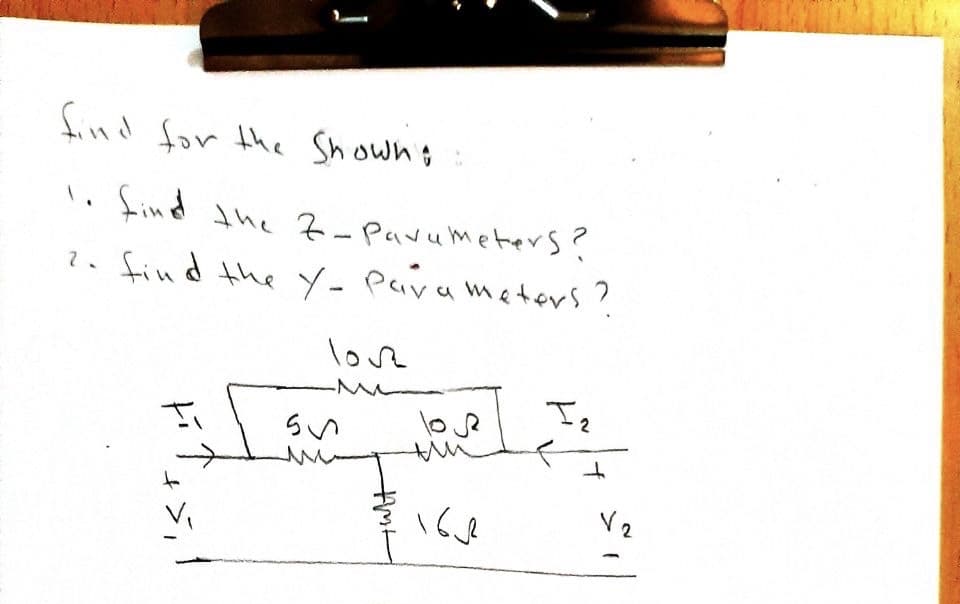 find for the Shown:
1. find the Z-Parumeters?
2. find the Y- Parameters?
10Ω
I1 5Ω 10Ω I2
+ +
V1 16Ω V2
- -